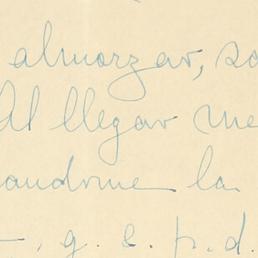 almorzar, so
Al llegar me
andome la
g. e. p. d.